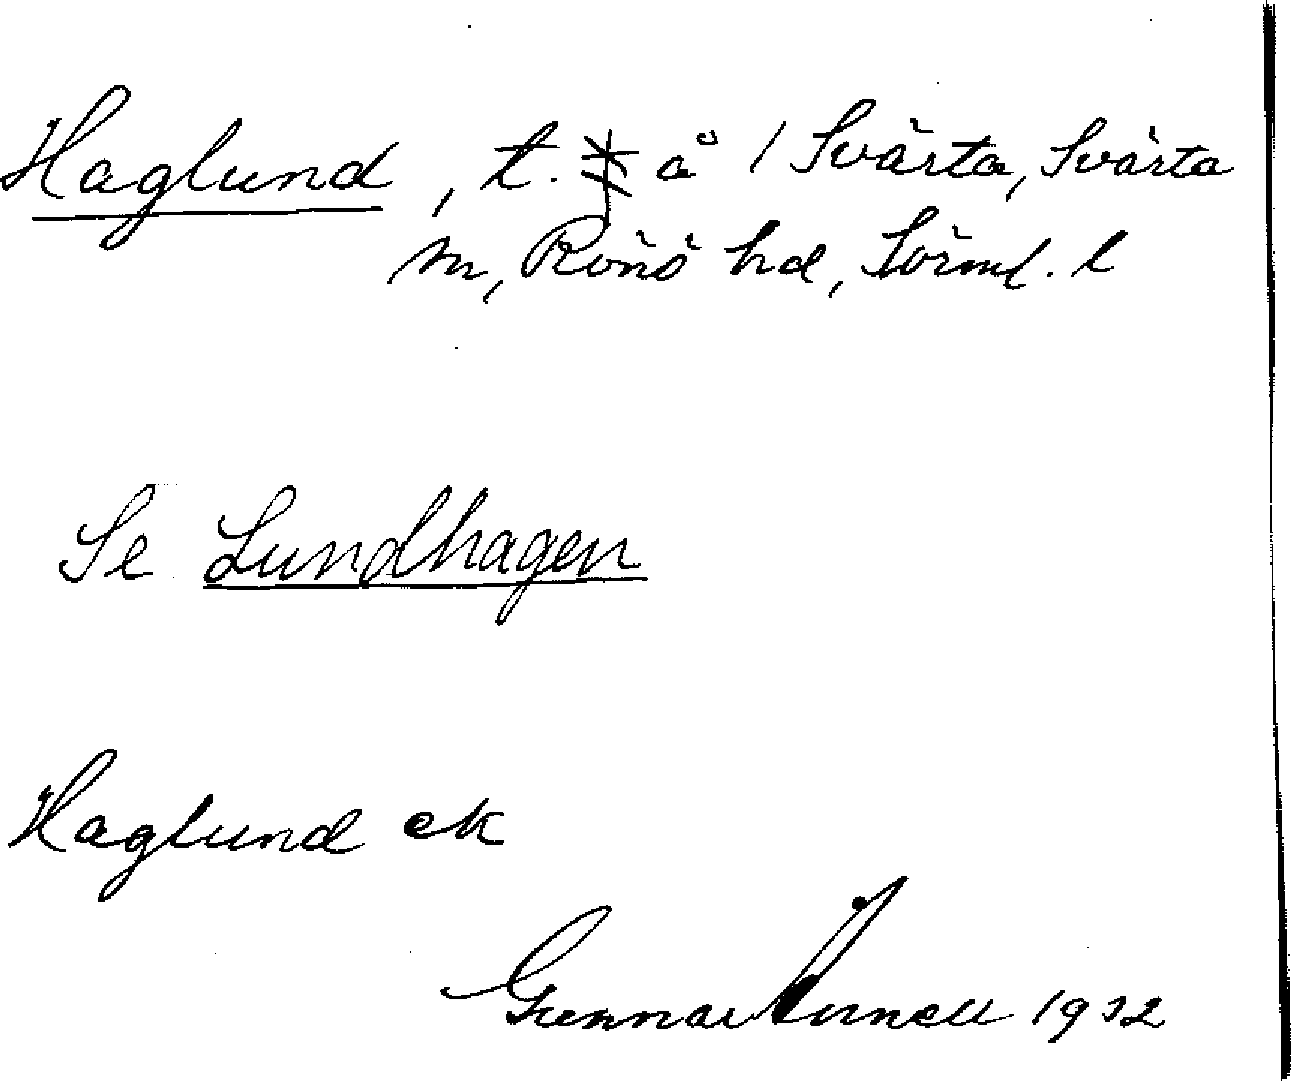 Haglund, t. ⚹ å 1 Svärta, Svärta
sn, Rönö hd, Sörml. l
Se Lundhagen
Haglund ek
Gunnar 1932